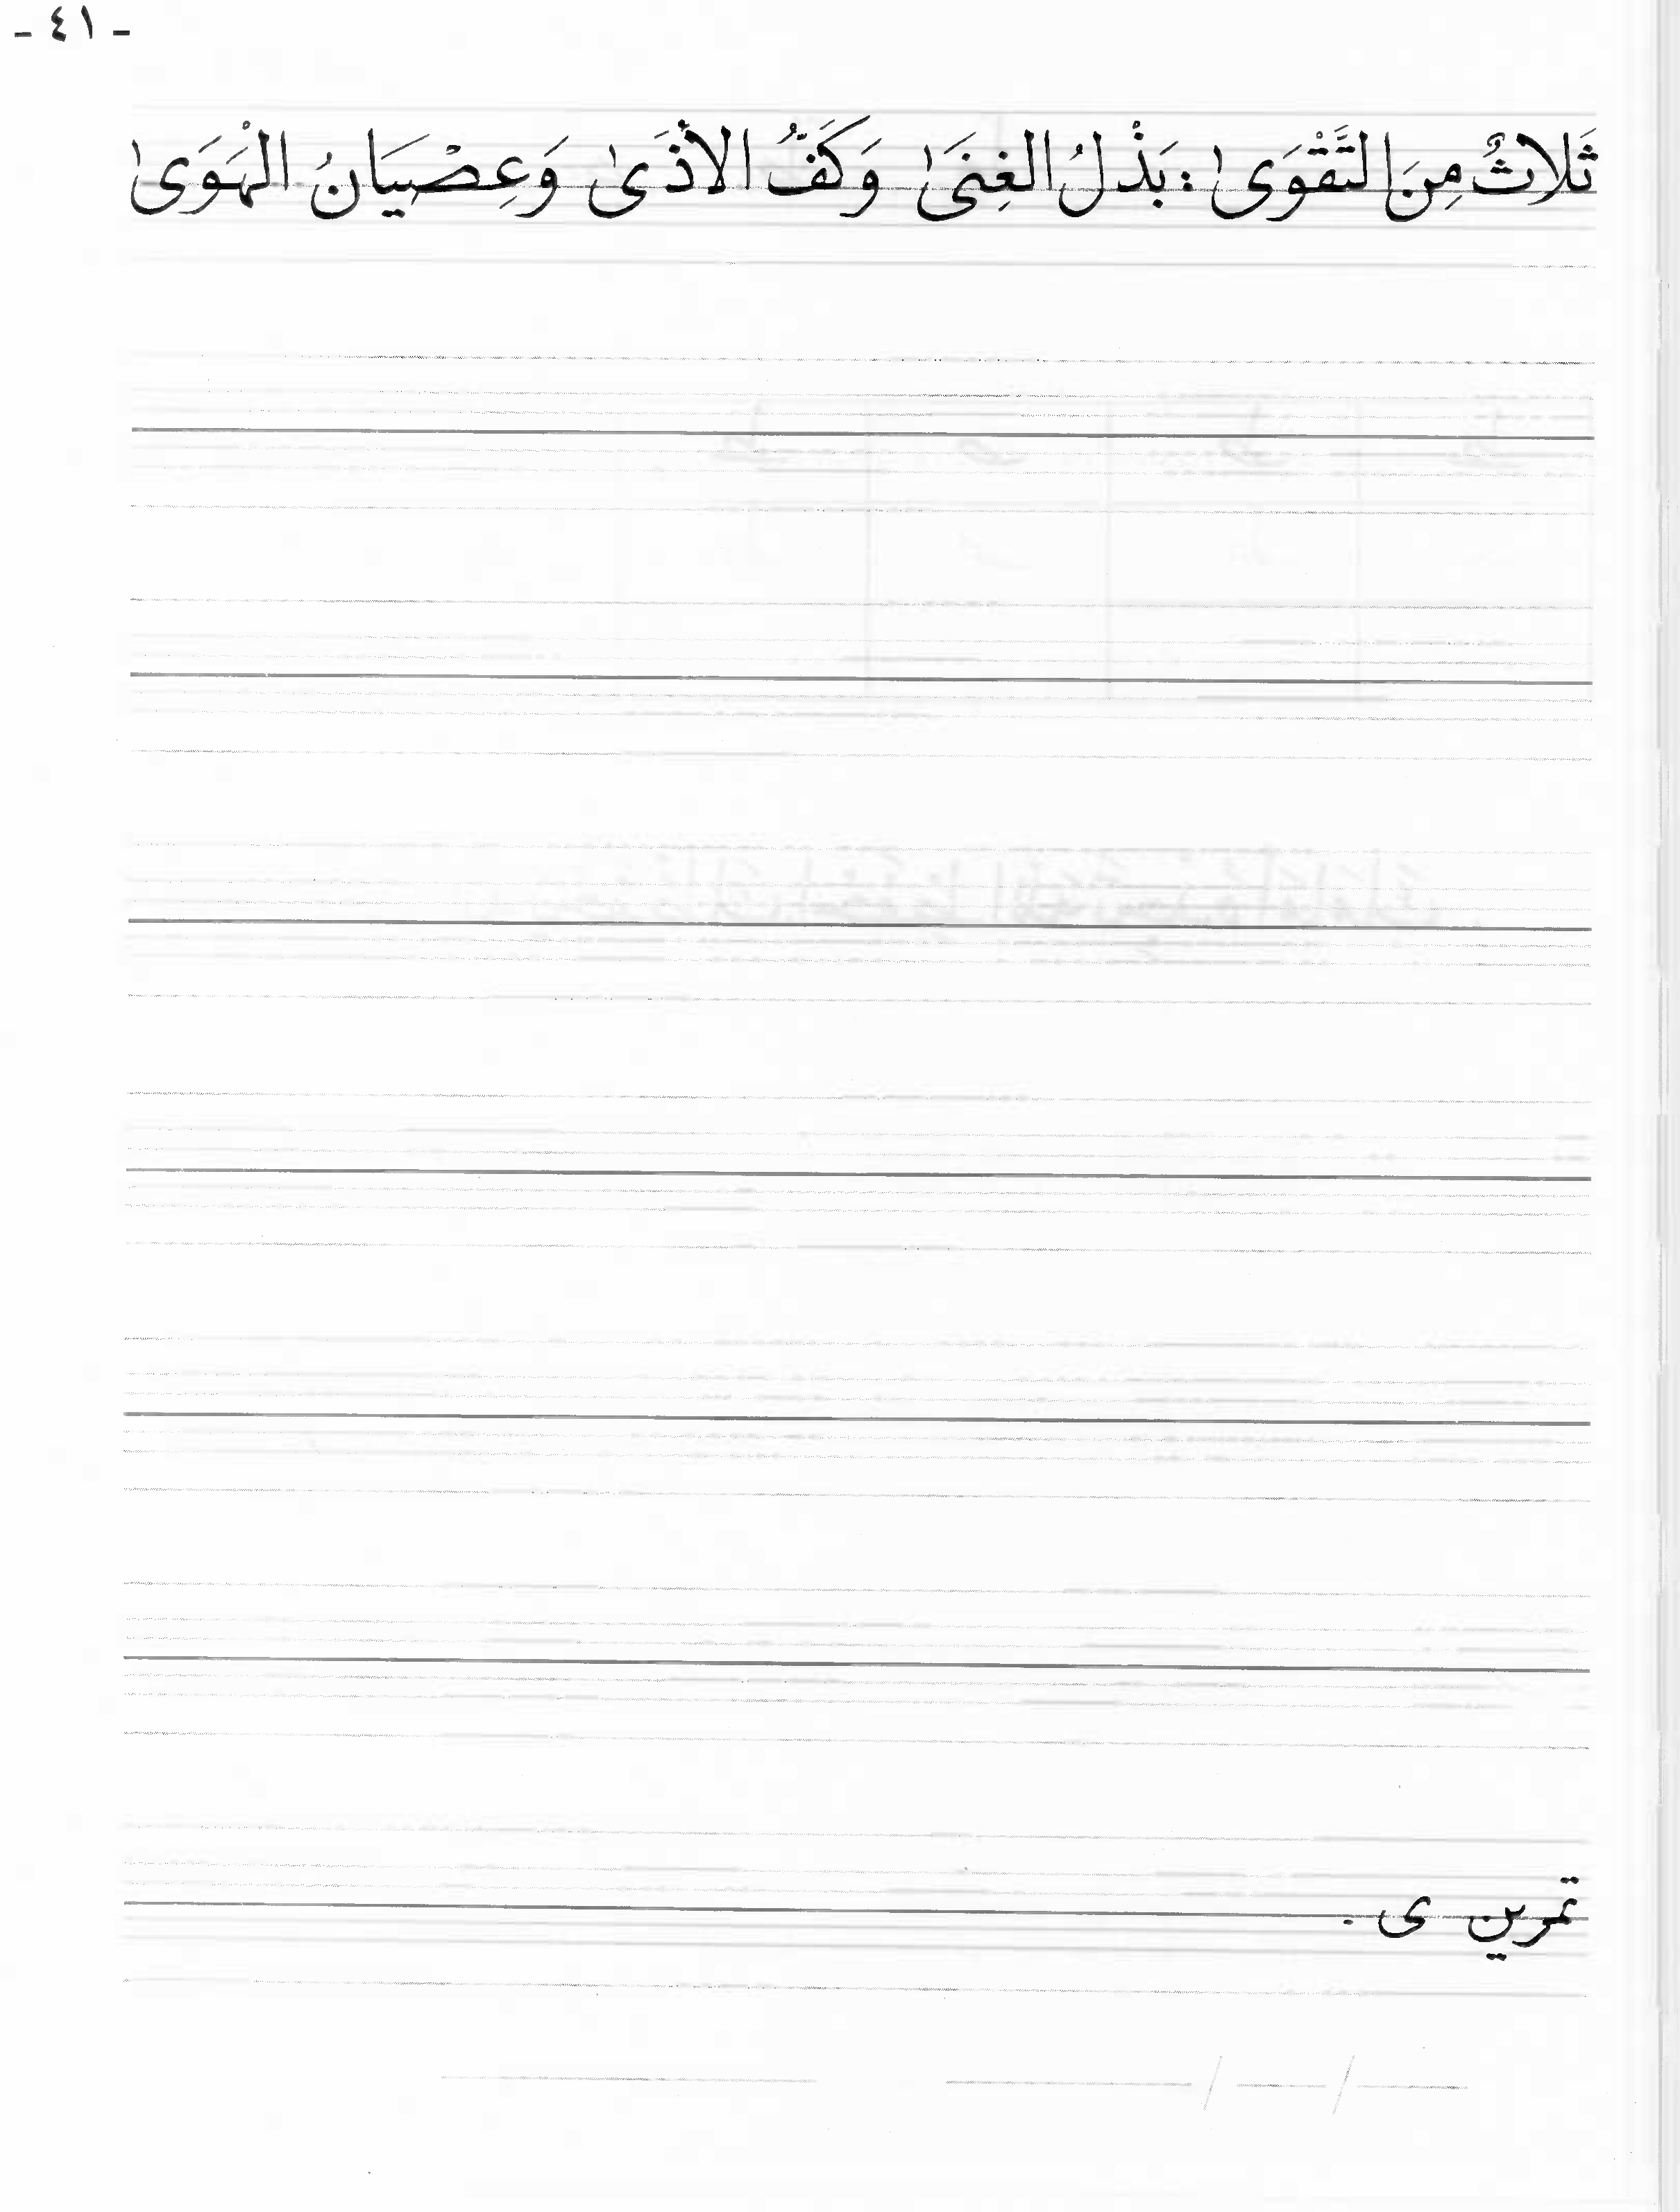 - ٤١ -
ثَلاثٌ مِنَ التَّقْوَىٰ : بَذْلُ الغِنَىٰ وَكَفُّ الأذَىٰ وَعِصْيَانُ الهَوَىٰ
تمرين ى .